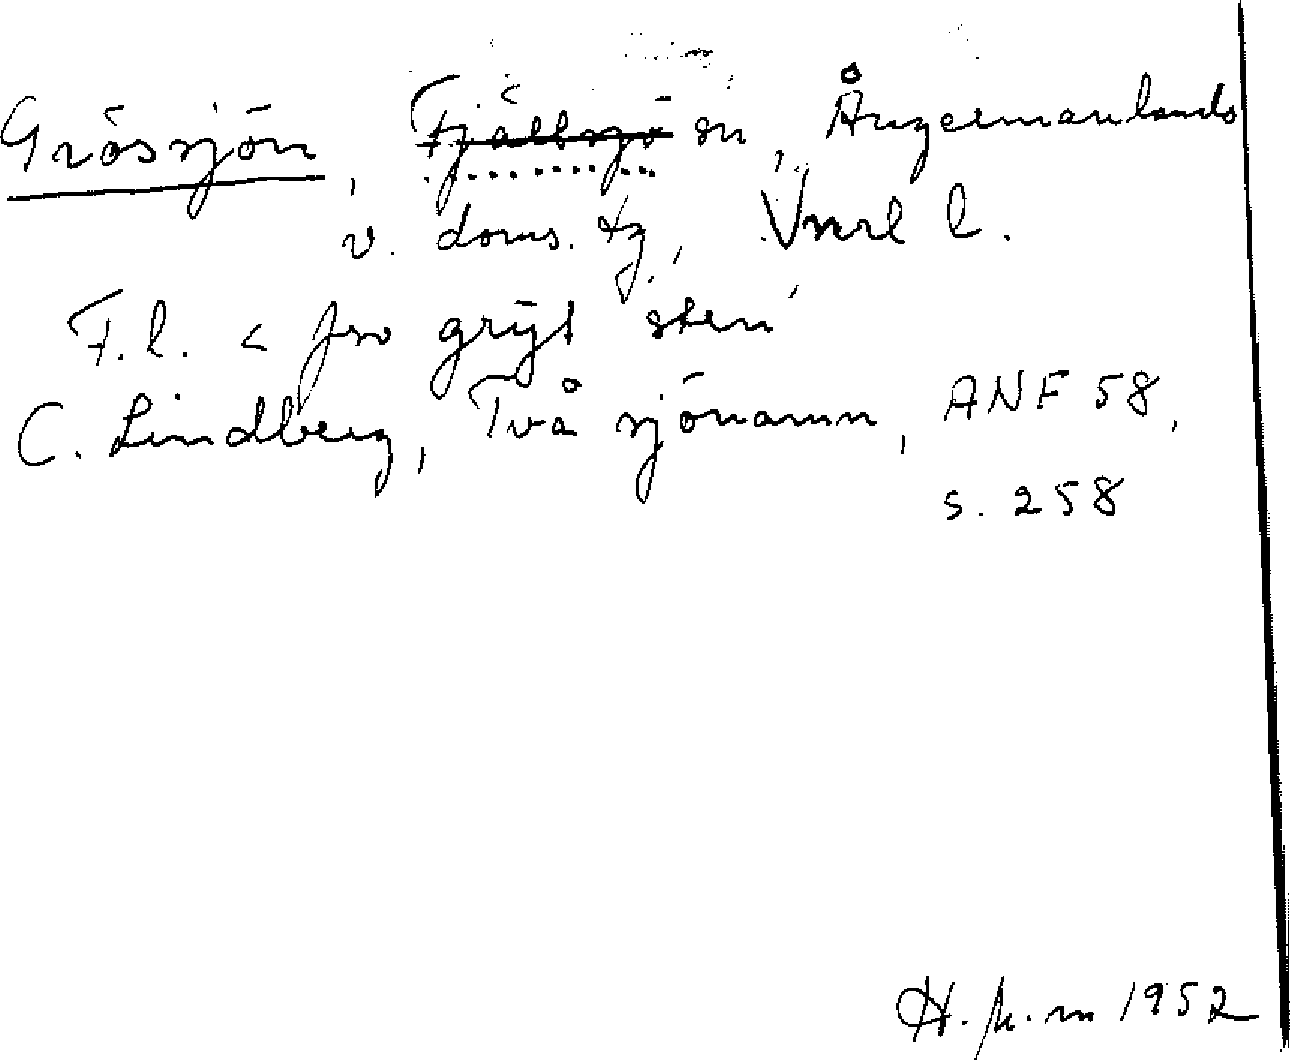 Grössjön, Fjällsjö sn, Ångermanlands
v. doms. tg, Vnrl l.
F.l. < fsv grȳt 'sten'
C. Lindberg, Två sjönamn, ANF 58,
s. 258
1952